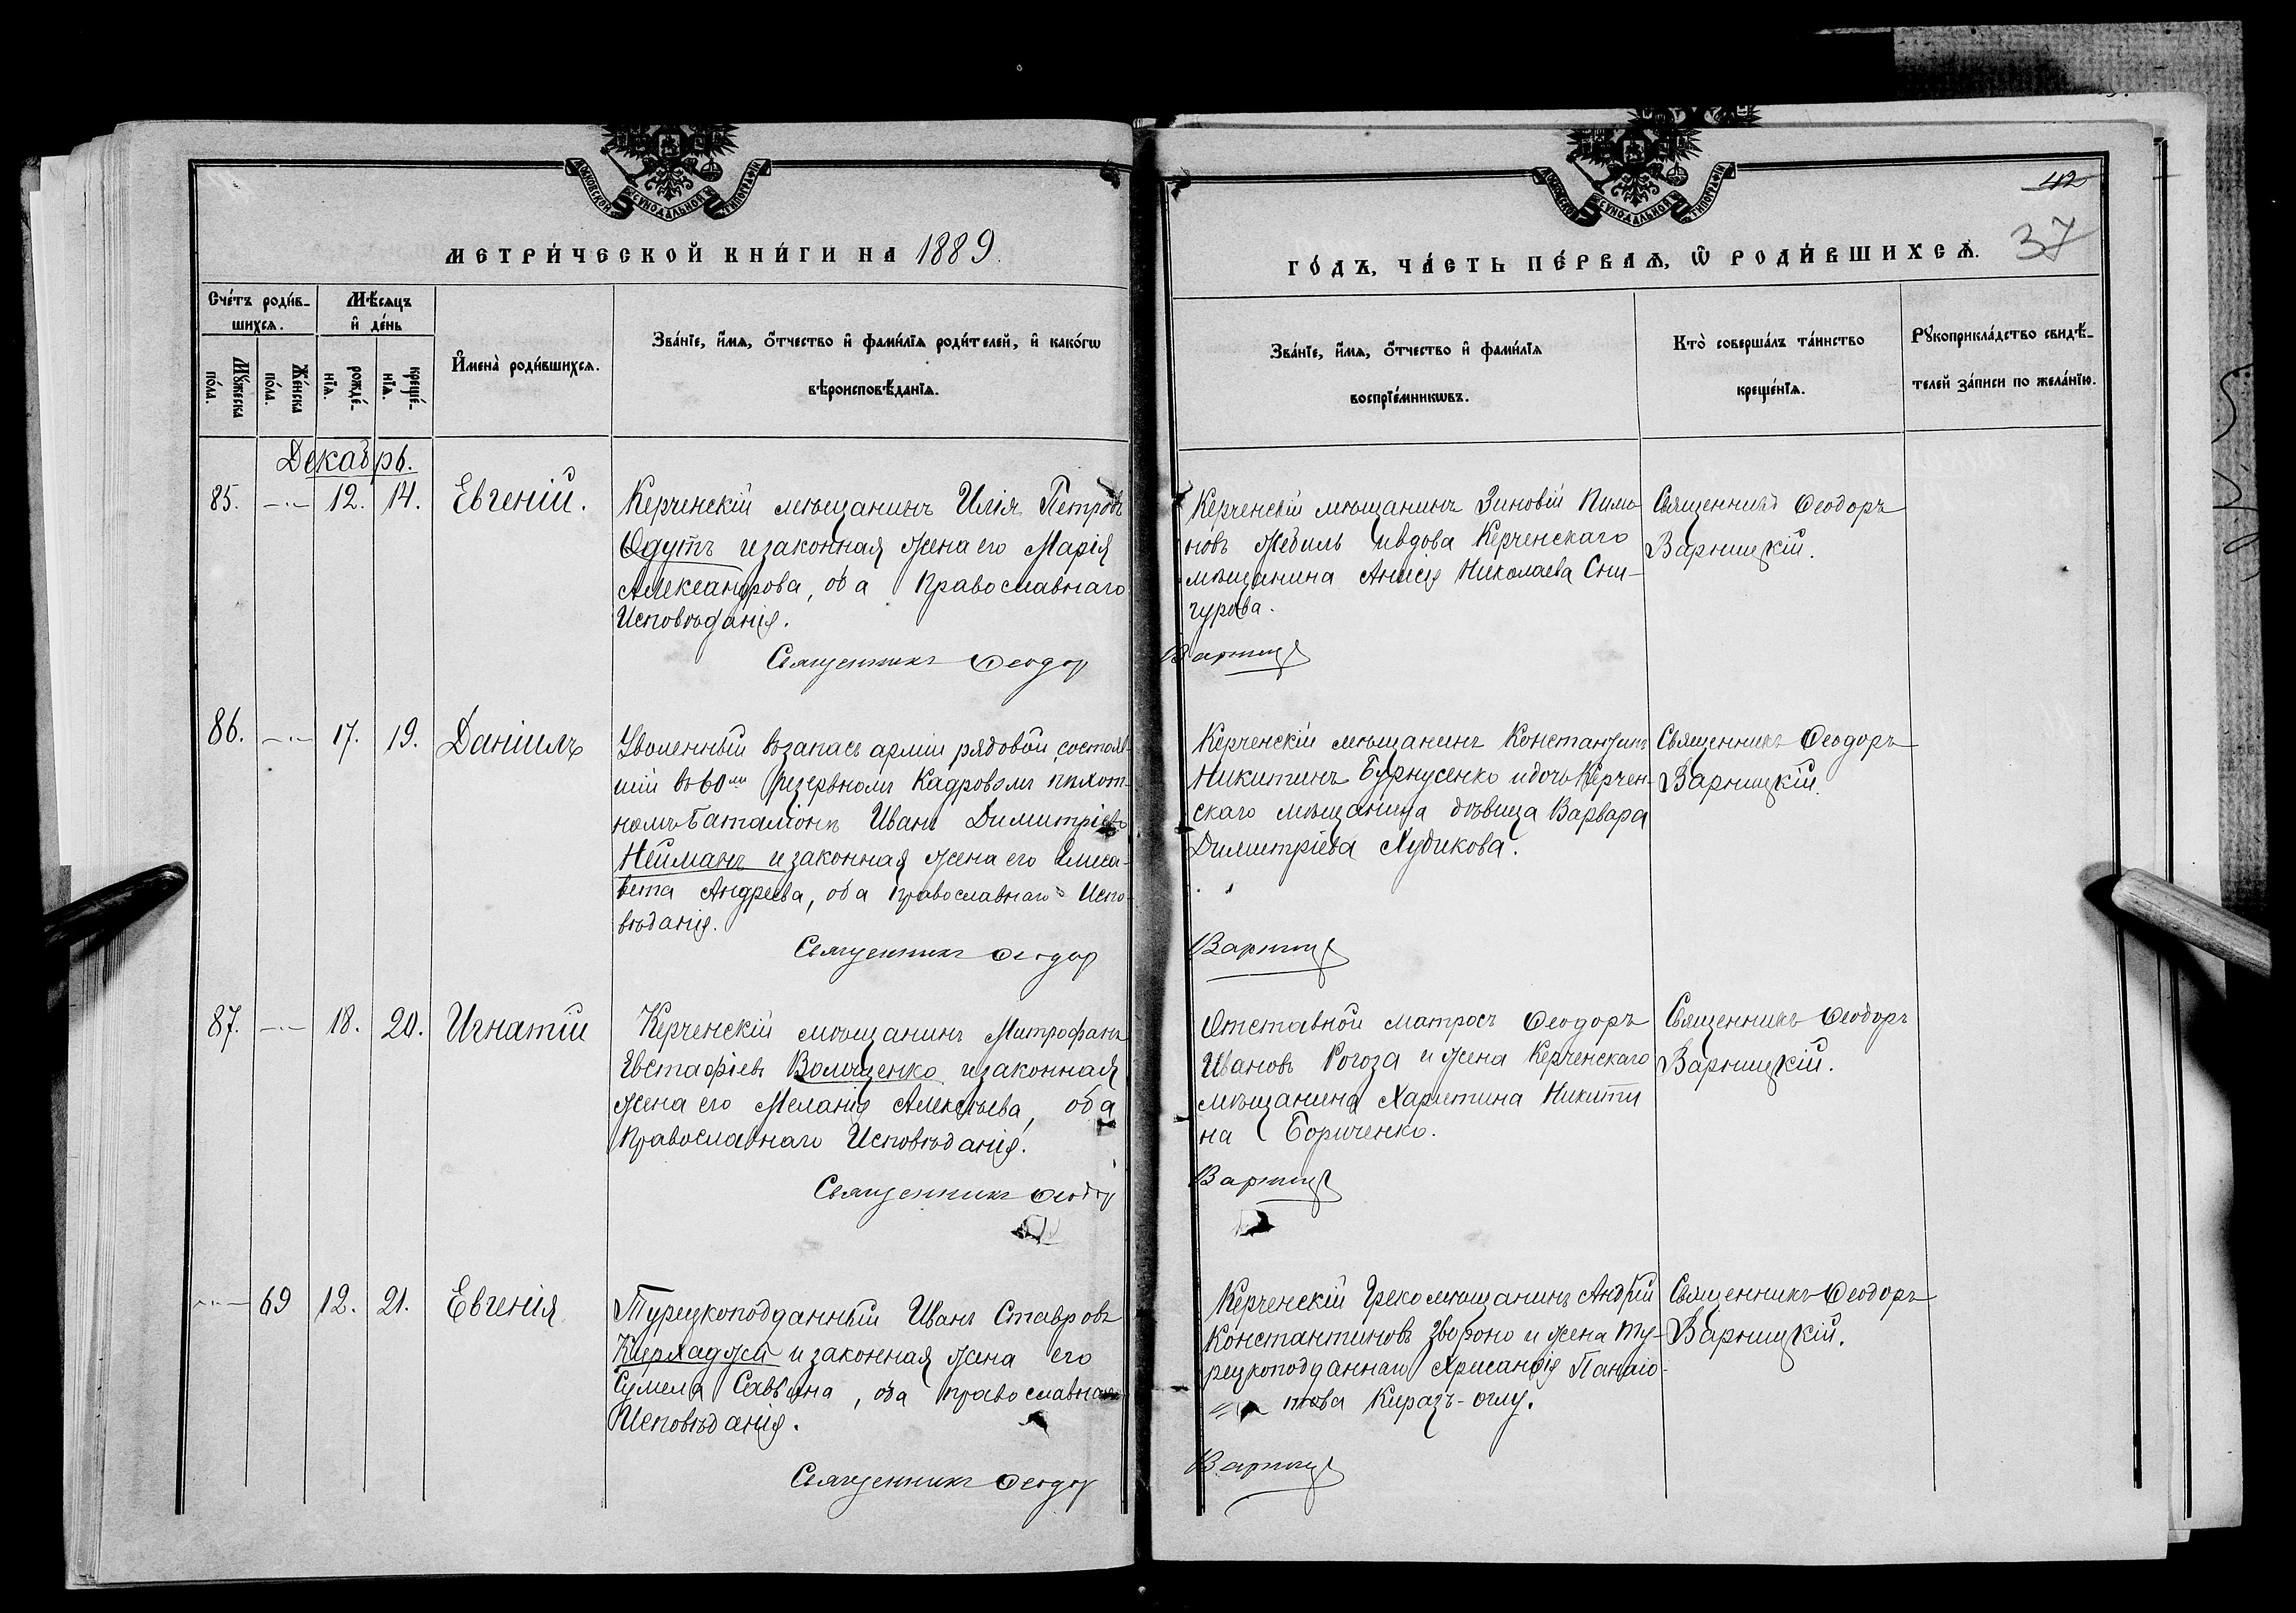 МОСКОВСКОЙ СѴНОДАЛЬНОЙ ТИПОГРАФІИ
МЕТРИ́ЧЕСКОЙ КНИ́ГИ НА 1889.
Сче́тъ роди́в-
шихсѧ.
Мѣ́сѧцъ
и҆ де́нь
Мꙋ́жеска по́ла.
Же́нска по́ла.
рожде́-нїѧ.
креще́-нїѧ.
И҆мена̀ роди́вшихсѧ.
Зва́нїе, и҆́мѧ, ѻ҆́тчество и҆ фами́лїѧ роди́телей, и҆ како́гѡ
вѣроисповѣ́данїѧ.
Декабрь.
85. —"— 12. 14. Евгеній.
Керченскій мѣщанинъ Илія Петровъ
Одутъ и законная жена его Марія
Александрова, оба Православнаго
Исповѣданія.
Священникъ Ѳеодор
86. —"— 17. 19. Даніилъ
Уволенный въ запасъ арміи рядовой, состояв
шій въ 60мъ резервномъ Кадровомъ пѣхот-
номъ баталіонѣ Иванъ Димитріевъ
Нейманъ и законная жена его Елиса-
вета Андреева, оба православнаго Испо-
вѣданія.
Священникъ Ѳеодор
87. —"— 18. 20. Игнатій
Керченскій мѣщанинъ Митрофанъ
Евстафіевъ Волощенко и законная
жена его Меланія Алексѣева, оба
Православнаго Исповѣданія.
Священникъ Ѳеодор
—"— 69 12. 21. Евгенія
Турецкоподданный Иванъ Ставровъ
Кирхаджи и законная жена его
Сумела Саввина, оба православнаго
Исповѣданія.
Священникъ Ѳеодор
МОСКОВСКОЙ СѴНОДАЛЬНОЙ ТИПОГРАФІИ
42
37
ГО́ДЪ, ЧА́СТЬ ПЕ́РВАѦ, Ѡ҆ РОДИ́ВШИХСѦ.
Зва́нїе, и҆́мѧ, ѻ҆́тчество и҆ фами́лїѧ
воспрїе́мникѡвъ.
Кто̀ соверша́лъ та́инство
креще́нїѧ.
Рꙋкоприкла́дство свидѣ́-
телей за́писи по жела́нїю.
Керченскій мѣщанинъ Зиновій Пимо
новъ Жебиль и вдова Керченскаго
мѣщанина Анисія Николаева Сни-
гурова.
Варниц
Священникъ Ѳеодоръ
Варницкій.
Керченскій мѣщанинъ Константинъ
Никитинъ Бурнусенко и дочь Керчен-
скаго мѣщанина дѣвица Варвара
Димитріева Худикова.
Варниц
Священникъ Ѳеодоръ
Варницкій.
Отставной матросъ Ѳеодоръ
Ивановъ Рогоза и жена Керченскаго
мѣщанина Харитина Никити
на Бориченко.
Варниц
Священникъ Ѳеодоръ
Варницкій.
Керченскій Грекомѣщанинъ Андрій
Константиновъ Звороно и жена ту-
рецкоподданнаго Хрисанфія Панаіо-
това Киразъ-оглу.
Варниц
Священникъ Ѳеодоръ
Варницкій.